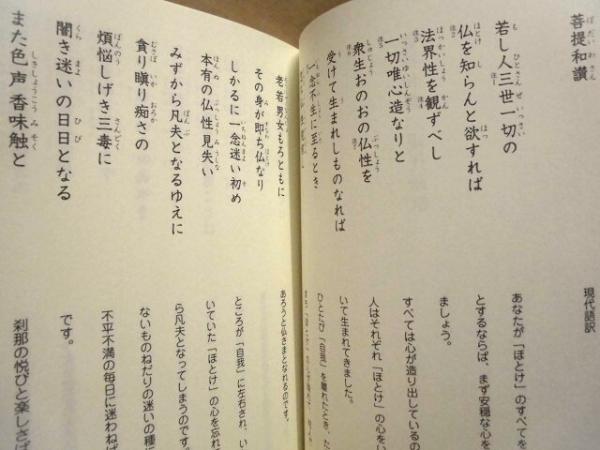 菩提和讃
若し人三世一切の
仏を知らんと欲すれば
法界性を観ずべし
一切唯心造なりと
衆生おのおの仏性を
受けて生まれしものなれば
一念不生に至るとき
老若男女もろともに
その身が即ち仏なり
しかるに一念迷い初め
本有の仏性見失い
みずから凡夫となるゆえに
貪り瞋り痴さの
煩悩しげき三毒に
闇き迷いの日日となる
また色声香味触と
現代語訳
あなたが「ほとけ」のすべてを
とするならば、まず安穏な心を
ましょう。
すべては心が造り出しているの
人はそれぞれ「ほとけ」の心をい
いて生まれてきました。
ひとたび「自我」を離れたとき、た
あろうと仏さまとなれるのです。
ところが「自我」に左右され、い
いていた「ほとけ」の心を忘れ
ら凡夫となってしまうのです。
ないものねだりの迷いの種に
不平不満の毎日に迷わねば
です。
刹那の悦びと楽しさば